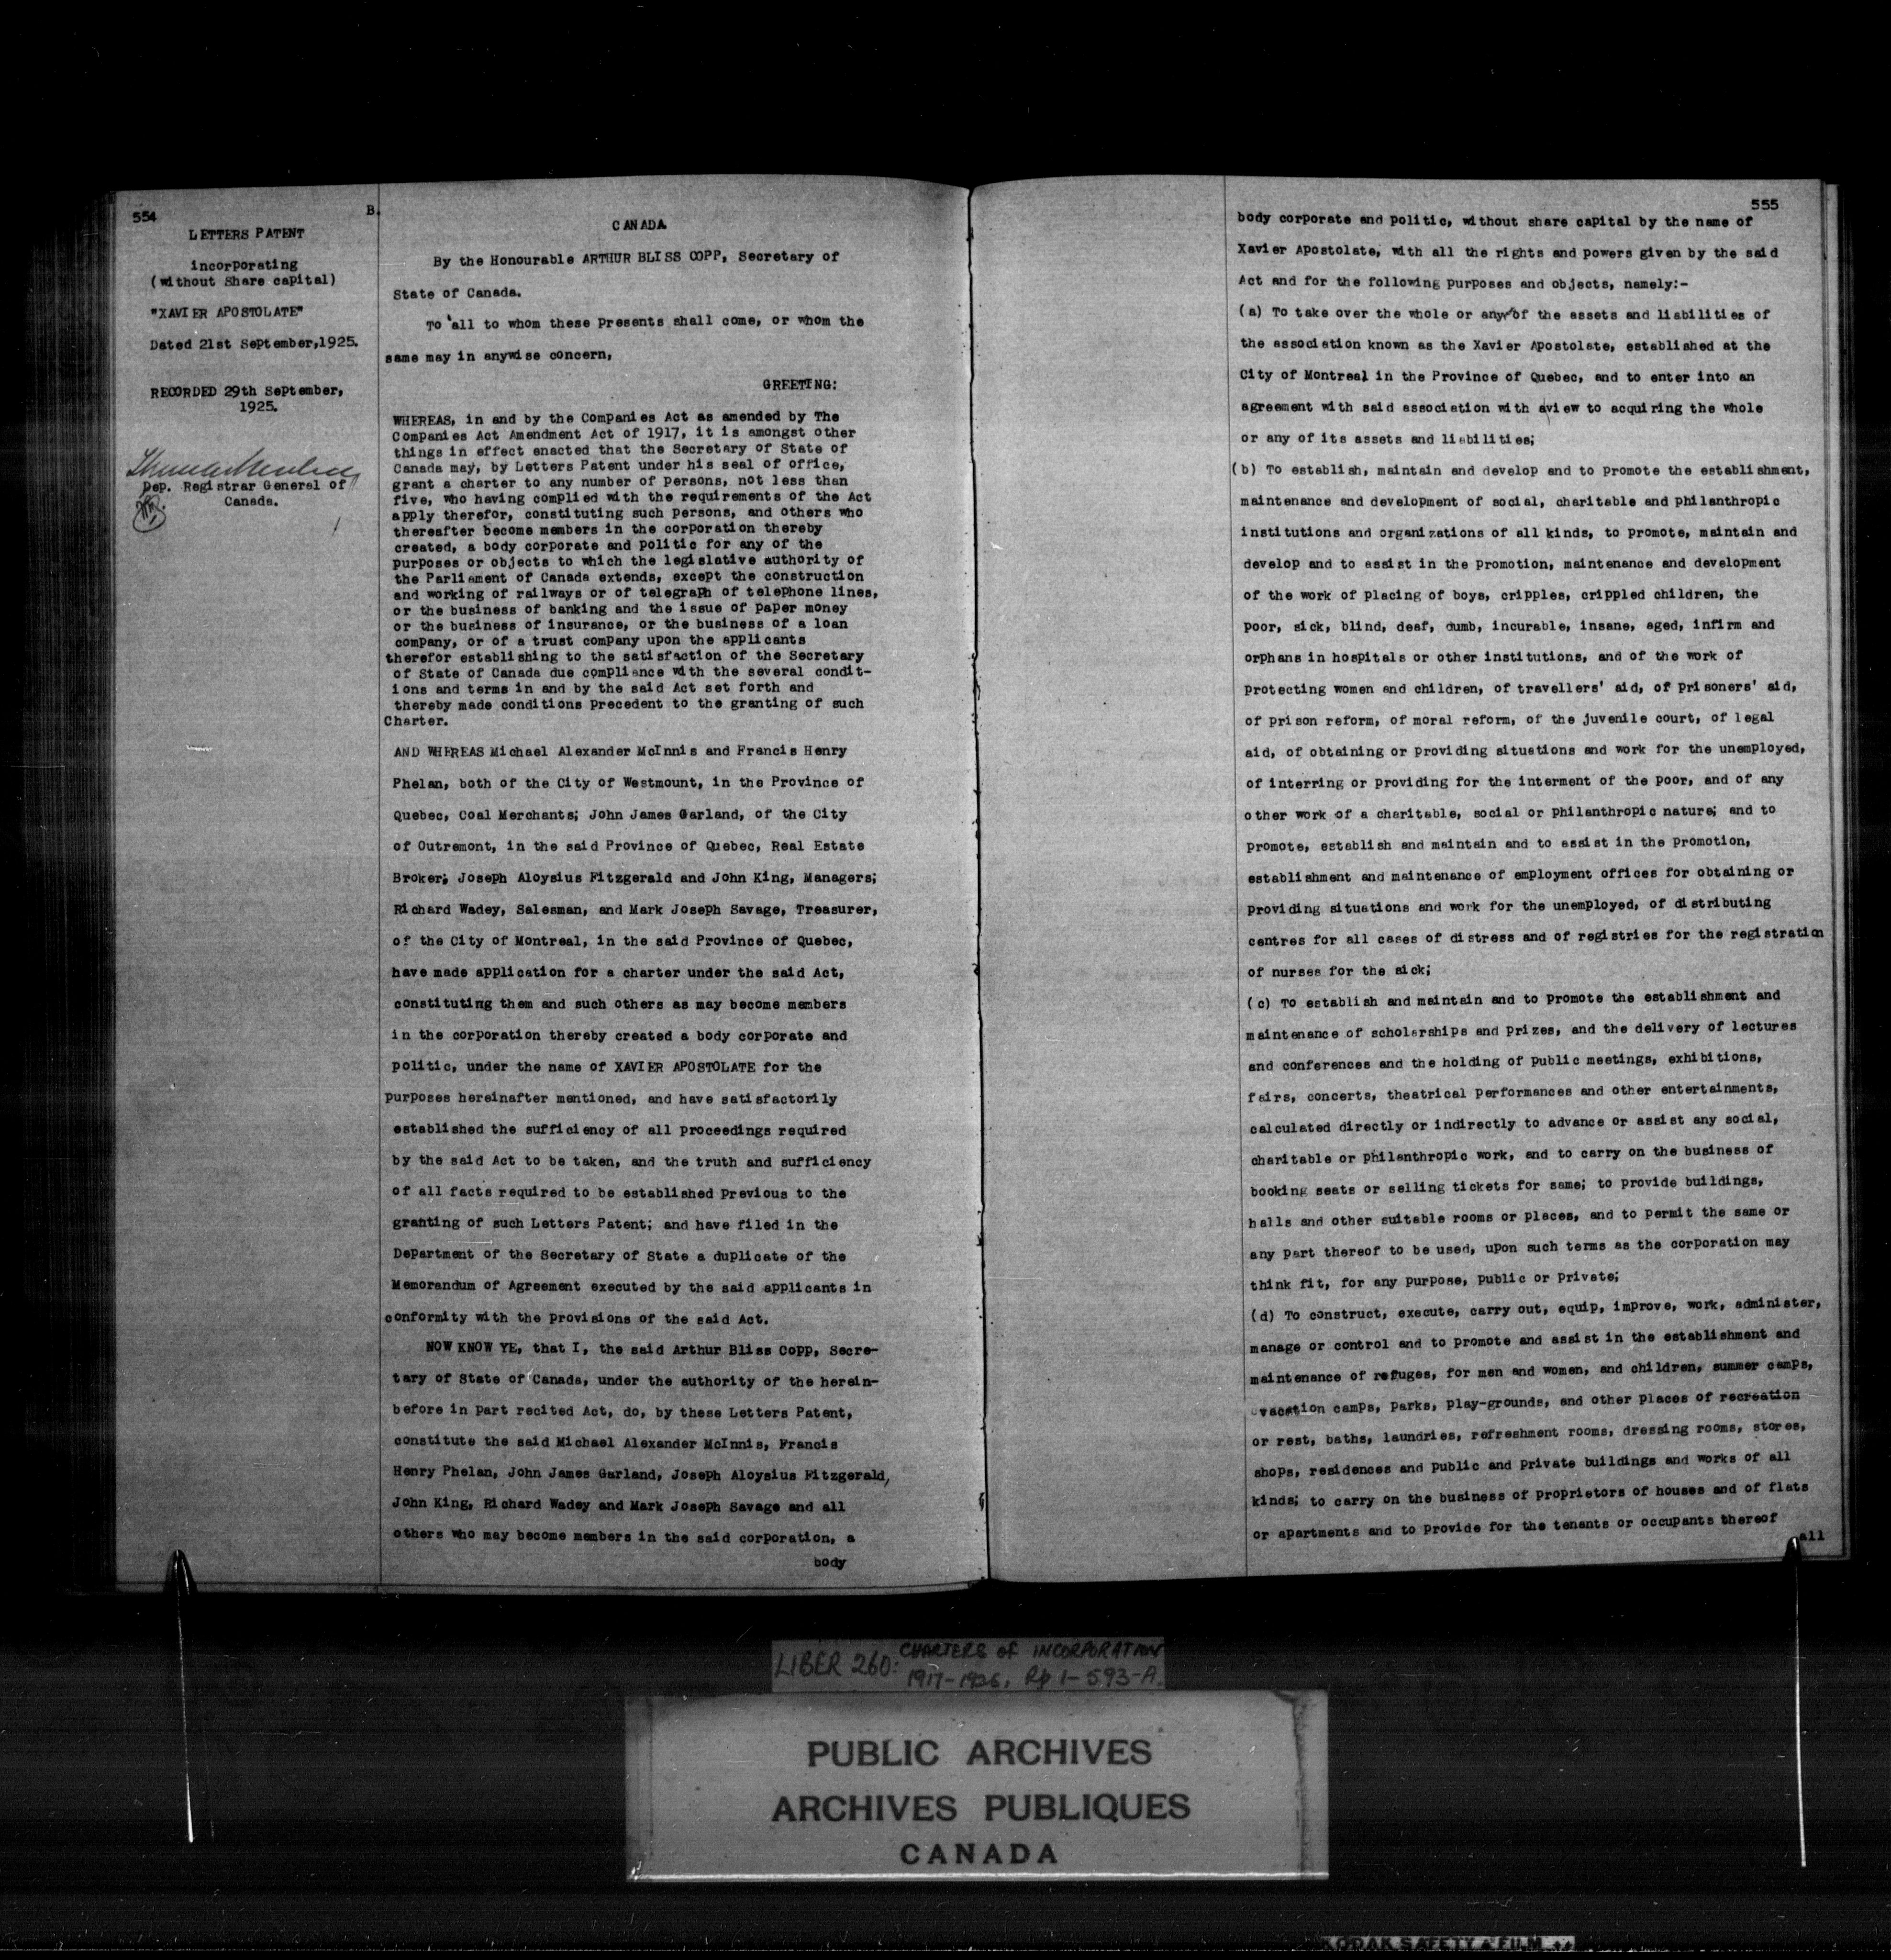 554
B.
LETTERS PATENT
incorporating
(without Share capital)
"XAVIER APOSTOLATE"
Dated 21st September,1925.
RECORDED 29th September,
1925.
Dep. Registrar General of
Canada.
CANADA
By the Honourable ARTHUR BLISS COPP, Secretary of
State of Canada.
To all to whom these Presents shall come, or whom the
same may in anywise concern,
GREETING:
WHEREAS, in and by the Companies Act as amended by The
Companies Act Amendment Act of 1917, it is amongst other
things in effect enacted that the Secretary of State of
Canada may, by Letters Patent under his seal of office,
grant a charter to any number of Persons, not less than
five, who having complied with the requirements of the Act
apply therefor, constituting such Persons, and others who
thereafter become members in the corporation thereby
created, a body corporate and politic for any of the
purposes or objects to which the legislative authority of
the Parliament of Canada extends, except the construction
and working of railways or of telegraph of telephone lines,
or the business of banking and the issue of paper money
or the business of insurance, or the business of a loan
company, or of a trust company upon the applicants
therefor establishing to the satisfaction of the Secretary
of State of Canada due compliance with the several condit-
ions and terms in and by the said Act set forth and
thereby made conditions precedent to the granting of such
Charter.
AND WHEREAS Michael Alexander McInnis and Francis Henry
Phelan, both of the City of Westmount, in the Province of
Quebec, Coal Merchants; John James Garland, of the City
of Outremont, in the said Province of Quebec, Real Estate
Broker; Joseph Aloysius Fitzgerald and John King, Managers;
Richard Wadey, Salesman, and Mark Joseph Savage, Treasurer,
of the City of Montreal, in the said Province of Quebec,
have made application for a charter under the said Act,
constituting them and such others as may become members
in the corporation thereby created a body corporate and
politic, under the name of XAVIER APOSTOLATE for the
purposes hereinafter mentioned, and have satisfactorily
established the sufficiency of all proceedings required
by the said Act to be taken, and the truth and sufficiency
of all facts required to be established previous to the
granting of such Letters Patent; and have filed in the
Department of the Secretary of State a duplicate of the
Memorandum of Agreement executed by the said applicants in
conformity with the provisions of the said Act.
NOW KNOW YE, that I, the said Arthur Bliss Copp, Secre-
tary of State of Canada, under the authority of the herein-
before in part recited Act, do, by these Letters Patent,
constitute the said Michael Alexander McInnis, Francis
Henry Phelan, John James Garland, Joseph Aloysius Fitzgerald,
John King, Richard Wadey and Mark Joseph Savage and all
others who may become members in the said corporation, a
body
555
body corporate and politic, without share capital by the name of
Xavier Apostolate, with all the rights and powers given by the said
Act and for the following purposes and objects, namely:-
(a) To take over the whole or any of the assets and liabilities of
the association known as the Xavier Apostolate, established at the
City of Montreal in the Province of Quebec, and to enter into an
agreement with said association with a view to acquiring the whole
or any of its assets and liabilities;
(b) To establish, maintain and develop and to promote the establishment,
maintenance and development of social, charitable and philanthropic
institutions and organizations of all kinds, to promote, maintain and
develop and to assist in the promotion, maintenance and development
of the work of placing of boys, cripples, crippled children, the
poor, sick, blind, deaf, dumb, incurable, insane, aged, infirm and
orphans in hospitals or other institutions, and of the work of
protecting women and children, of travellers' aid, of prisoners' aid,
of prison reform, of moral reform, of the juvenile court, of legal
aid, of obtaining or providing situations and work for the unemployed,
of interring or providing for the interment of the poor, and of any
other work of a charitable, social or philanthropic nature; and to
promote, establish and maintain and to assist in the promotion,
establishment and maintenance of employment offices for obtaining or
providing situations and work for the unemployed, of distributing
centres for all cases of distress and of registries for the registration
of nurses for the sick;
(c) To establish and maintain and to promote the establishment and
maintenance of scholarships and prizes, and the delivery of lectures
and conferences and the holding of public meetings, exhibitions,
fairs, concerts, theatrical performances and other entertainments,
calculated directly or indirectly to advance or assist any social,
charitable or philanthropic work, and to carry on the business of
booking seats or selling tickets for same; to provide buildings,
halls and other suitable rooms or places, and to permit the same or
any part thereof to be used, upon such terms as the corporation may
think fit, for any purpose, public or private;
(d) To construct, execute, carry out, equip, improve, work, administer,
manage or control and to promote and assist in the establishment and
maintenance of refuges, for men and women, and children, summer camps,
vacation camps, parks, play-grounds, and other places of recreation
or rest, baths, laundries, refreshment rooms, dressing rooms, stores,
shops, residences and public and private buildings and works of all
kinds; to carry on the business of proprietors of houses and of flats
or apartments and to provide for the tenants or occupants thereof
all
LIBER 260: CHARTERS of INCORPORATION
1917-1926, Pp 1-593-A.
PUBLIC ARCHIVES
ARCHIVES PUBLIQUES
CANADA
KODAK SAFETY FILM